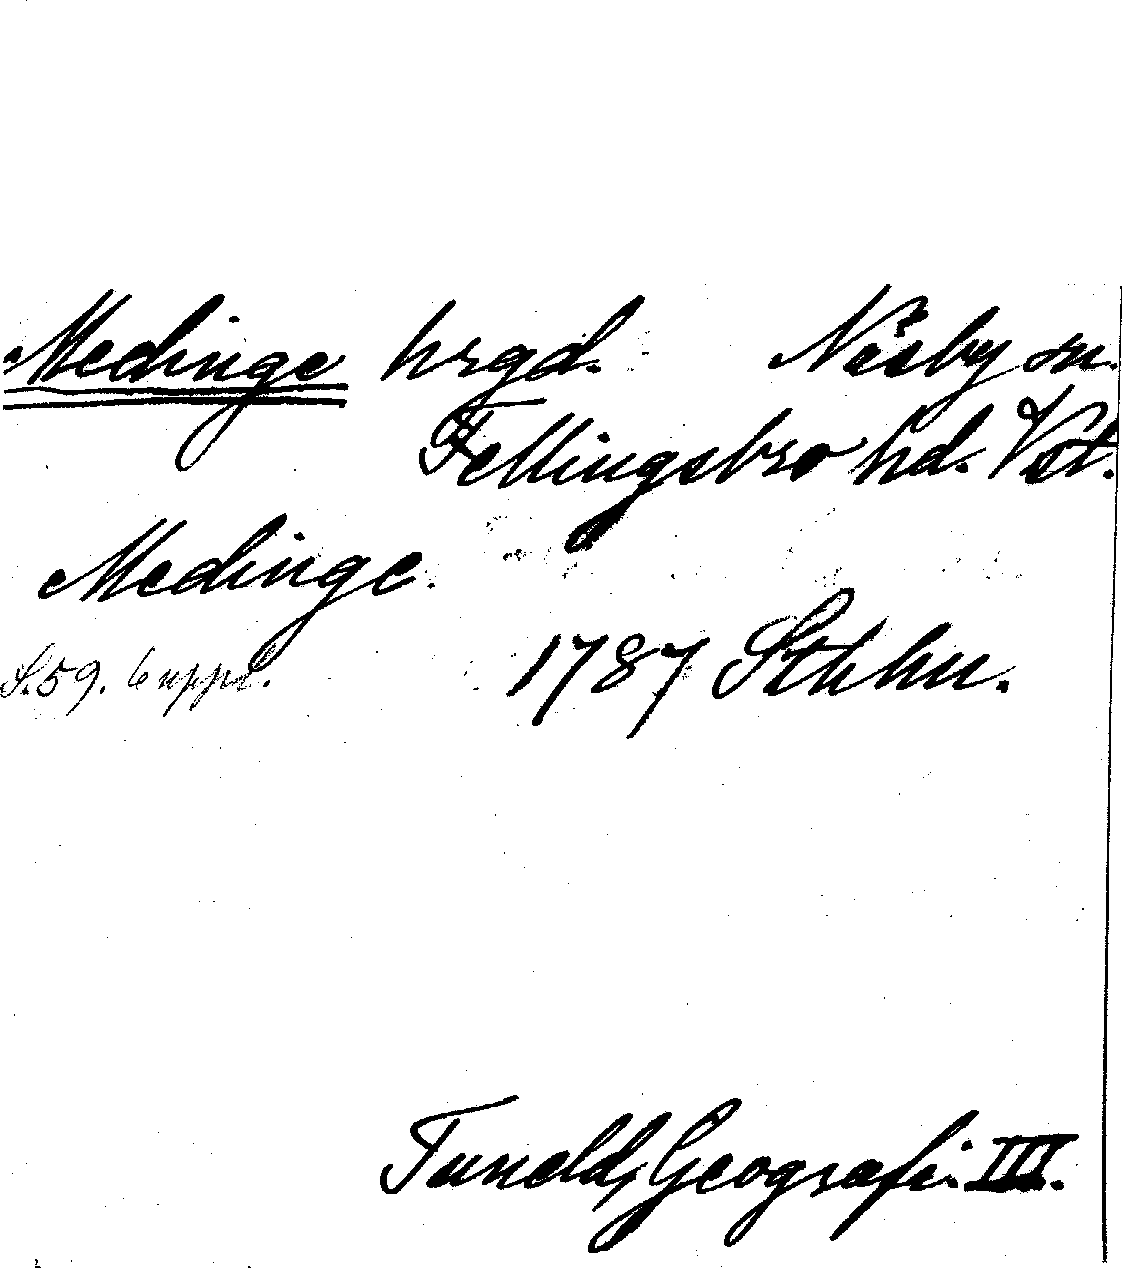 Medinge hrgd. Näsby sn.
Fellingsbro hd. Vst.
Medinge.
S. 59. 6 uppl. 1787 Sthlm.
Tuneld, Geografi. III.